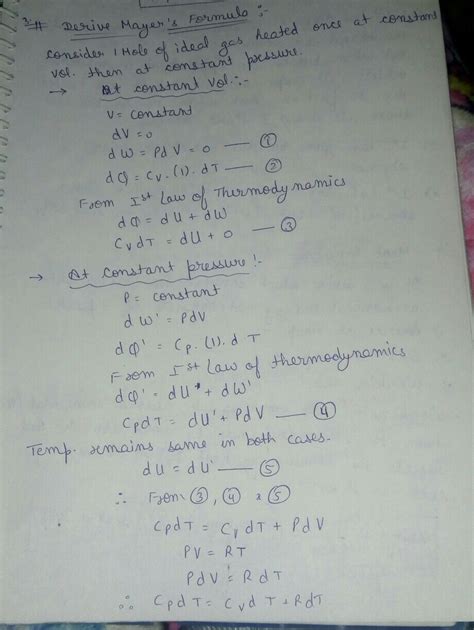 # Derive Mayer's Formula :-
Consider 1 Mole of ideal gas heated once at constant
vol. then at constant pressure.
→ At constant Vol. :-
V = constant
dV = 0
dW = PdV = 0 — ①
dQ = Cv. (1). dT — ②
From Ist Law of Thermodynamics
dQ = dU + dW
CvdT = dU + 0 — ③
→ At constant pressure :-
P = constant
dW' = PdV
dQ' = Cp. (1). dT
From Ist Law of thermodynamics
dQ' = dU' + dW'
CpdT = dU' + PdV — ④
Temp. remains same in both cases.
dU = dU' — ⑤
∴ From ③, ④ & ⑤
CpdT = CvdT + PdV
PV = RT
PdV = RdT
∴ CpdT = CvdT + RdT